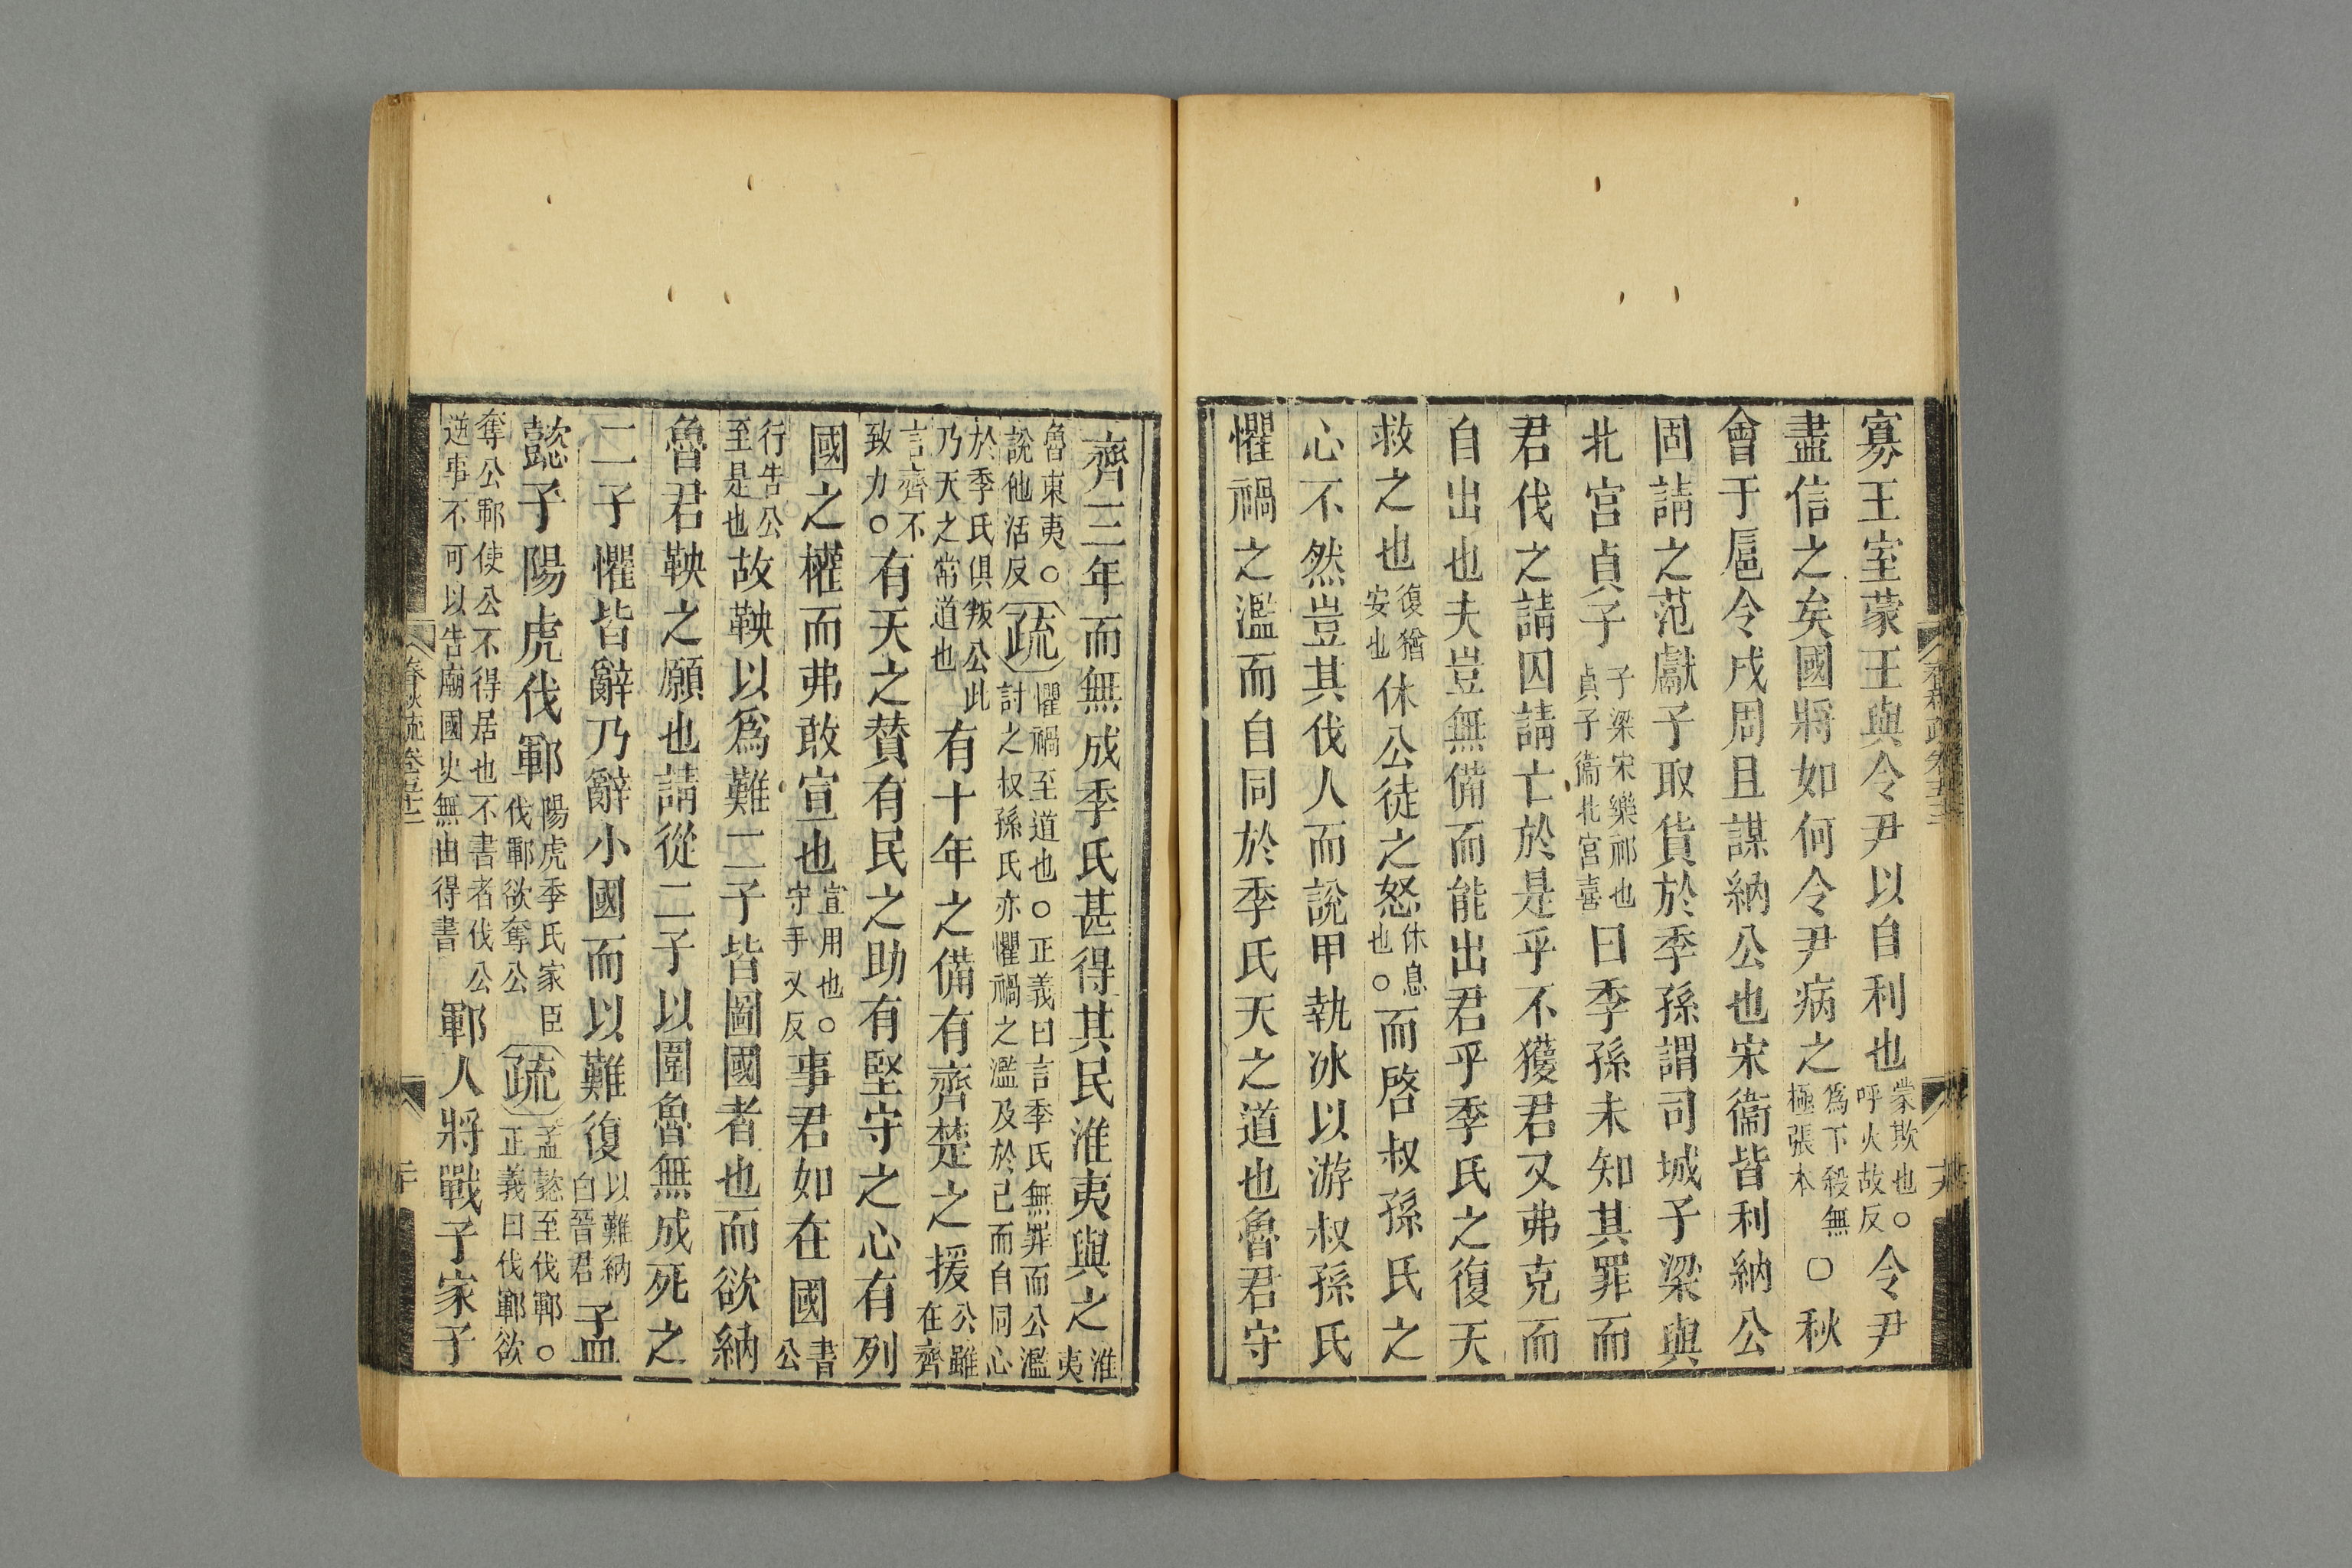 寡王室蒙王與令尹以自利也蒙欺也○呼火故反令尹
盡信之矣國將如何令尹病之爲下殺無極張本○秋
會于扈令戍周且謀納公也宋衞皆利納公
固請之范獻子取貨於季孫謂司城子梁與
北宮貞子子梁宋樂祁也貞子衞北宮喜曰季孫未知其罪而
君伐之請囚請亡於是乎不獲君又弗克而
自出也夫豈無備而能出君乎季氏之復天
救之也復猶安也休公徒之怒休息也○而啓叔孫氏之
心不然豈其伐人而說甲執冰以游叔孫氏
懼禍之濫而自同於季氏天之道也魯君守
齊三年而無成季氏甚得其民淮夷與之淮夷
魯東夷○說他活反疏懼禍至道也○正義曰言季氏無罪而公濫討之叔孫氏亦懼禍之濫及於己而自同心
於季氏俱叛公此乃天之常道也有十年之備有齊楚之援公雖在齊
言齊不致力○有天之贊有民之助有堅守之心有列
國之權而弗敢宣也宣用也○守手又反事君如在國書公
行告公至是也故鞅以爲難二子皆圖國者也而欲納
魯君鞅之願也請從二子以圍魯無成死之
二子懼皆辭乃辭小國而以難復以難納白晉君孟
懿子陽虎伐鄆陽虎季氏家臣伐鄆欲奪公疏孟懿至伐鄆○正義曰伐鄆欲
奪公鄆使公不得居也不書者伐公逆事不可以告廟國史無由得書鄆人將戰子家子
春秋疏卷五十二